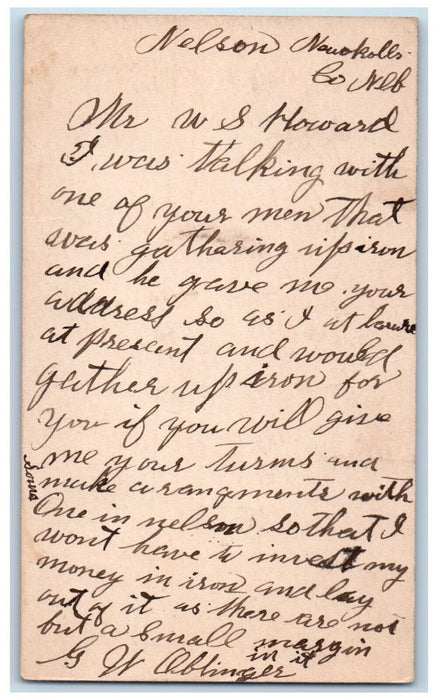 Nelson Nuckolls
Co Neb
Mr W S Howard
I was talking with
one of your men that
was gathering up iron
and he gave me your
address so as I at
at present and would
gather up iron for
you if you will give
me your turms and
make arangments with
Some
One in nelson so that I
wont have to invest my
money in iron and lay
out of it as there are not
but a Small margin
in it
G W Ablinger